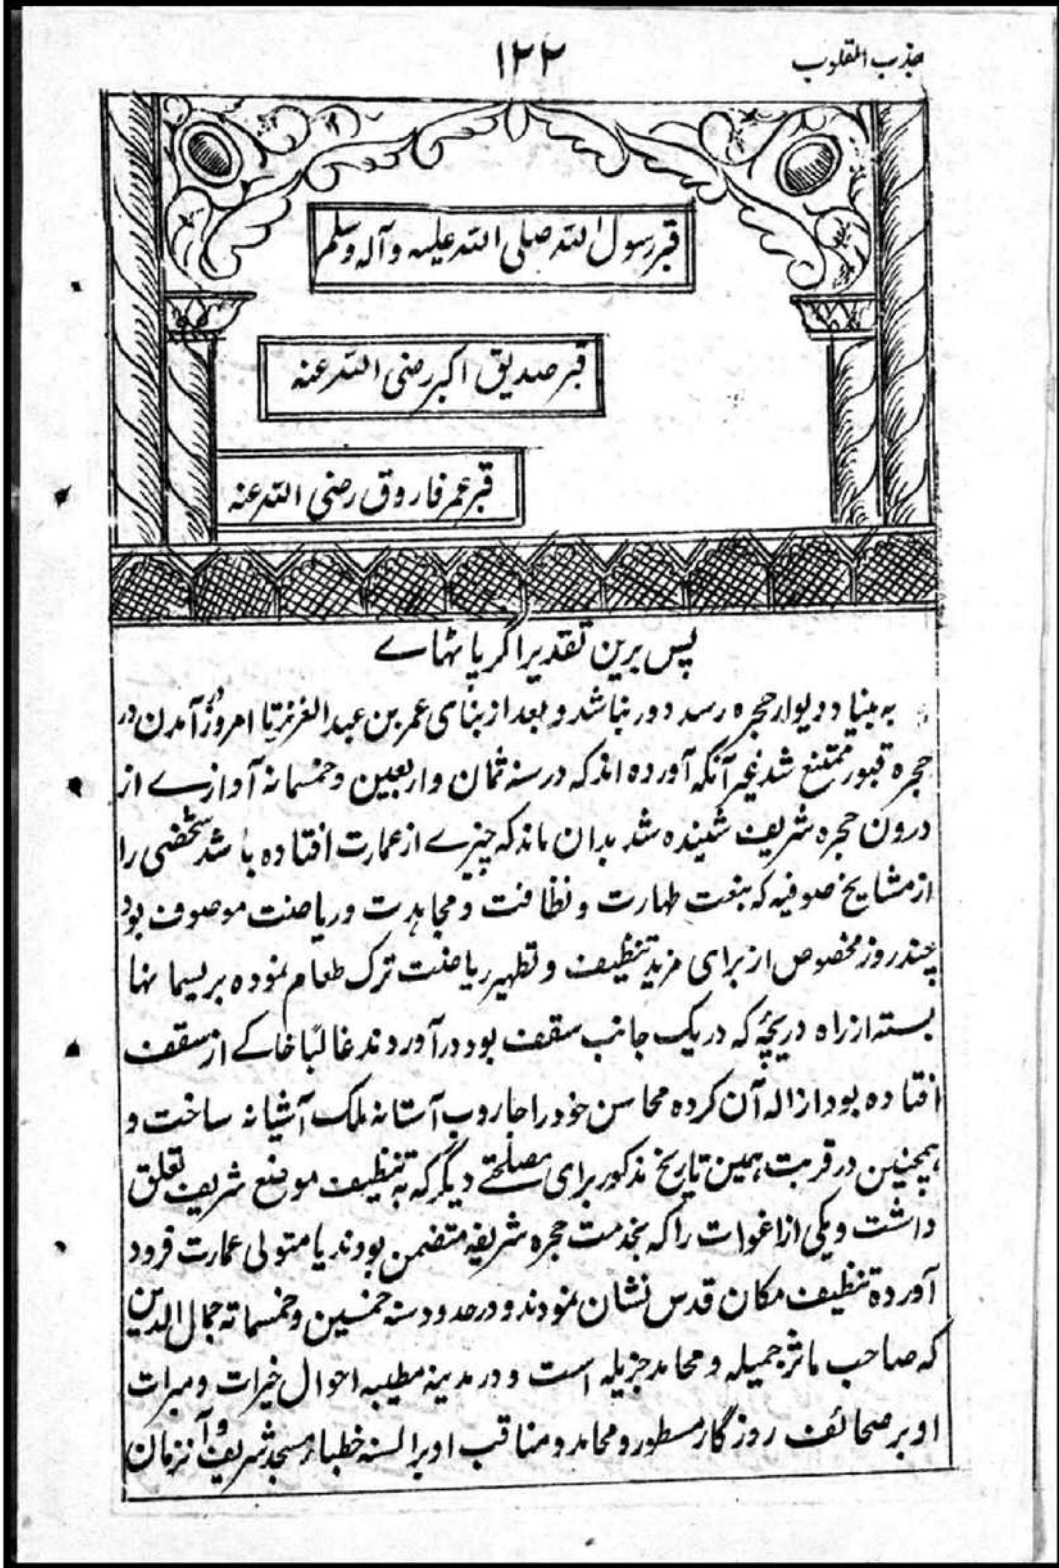 جذب القلوب
۱۲۲
قبر رسول اللہ صلی اللہ علیہ وآلہ وسلم
قبر صدیق اکبر رضی اللہ عنہ
قبر عمر فاروق رضی اللہ عنہ
پس برین تقدیر اگر پایہاے
بہ بنیاد دیوار حجرہ رسد دور نباشد و بعد از بنای عمر بن عبد العزیز تا امروز آمدن در
حجرہ قبور ممتنع شد غیر آنکہ آوردہ اند کہ در سنہ ثمان واربعین وخمسمائہ آوازے از
درون حجرہ شریف شنیدہ شد بدان ماند کہ چیزے از عمارت افتادہ باشد شخصی را
از مشایخ صوفیہ کہ بنعت طہارت ونظافت ومجاہدت وریاضت موصوف بود
چند روز مخصوص از برای مزید تنظیف و تطہیر ریاضت ترک طعام نمودہ بریسمانہا
بستہ از راہ دریچہٴ کہ در یک جانب سقف بود درآوردند غالبًا خاکے از سقف
افتادہ بود ازالہ آن کردہ محاسن خود را جاروب آستانہ ملک آشیانہ ساخت و
ہمچنین در قربت ہمین تاریخ مذکور برای مصلحتے دیگر کہ بہ تنظیف موضع شریف تعلق
داشت ویکی از اغوات را کہ بخدمت حجرہ شریفہ متضمن بودند با متولی عمارت فرود
آوردہ تنظیف مکان قدس نشان نمودند ودر حدود سنہ خمسین وخمسمائہ جمال الدین
کہ صاحب ماثر جمیلہ و محامد جزیلہ است ودر مدینہ مطیبہ احوال خیرات ومبرات
او بر صحائف روزگار مسطور و محامد ومناقب او بر السنہ خطباء مسجد شریف آنزمان